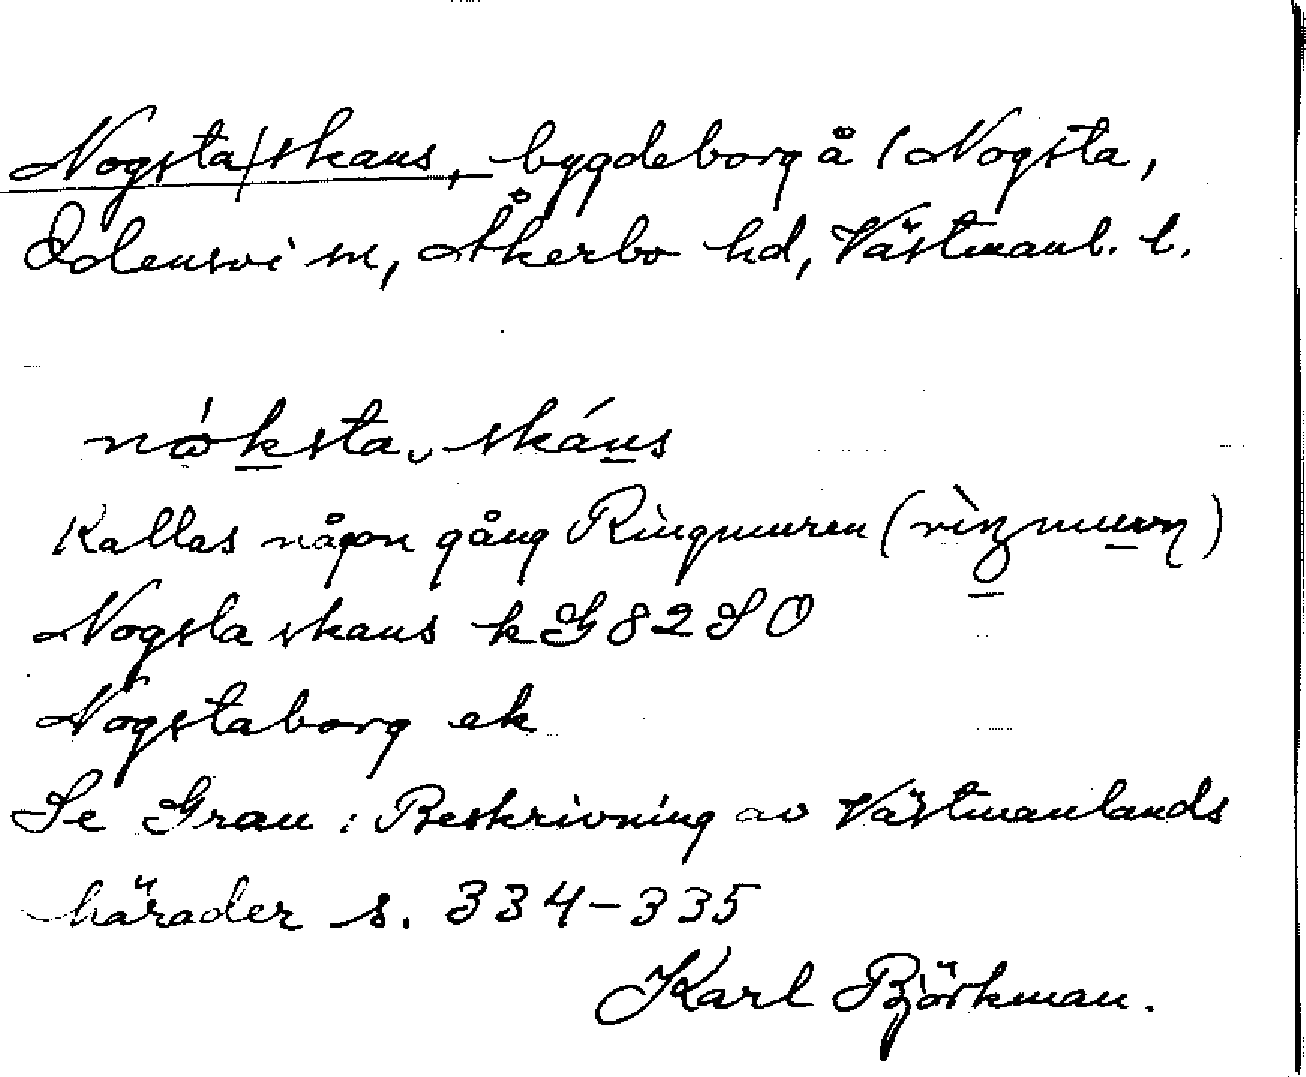 Nogsta/skans, bygdeborg å 1 Nogsta,
Odensvi sn, Åkerbo hd, Västmanl. l.
nóksta, skáns
Kallas någon gång Ringmuren (rìŋmurn)
Nogsta skans kG82SO
Nogstaborg ek
Se Grau: Beskrivning av Västmanlands
härader s. 334-335
Karl Björkman.